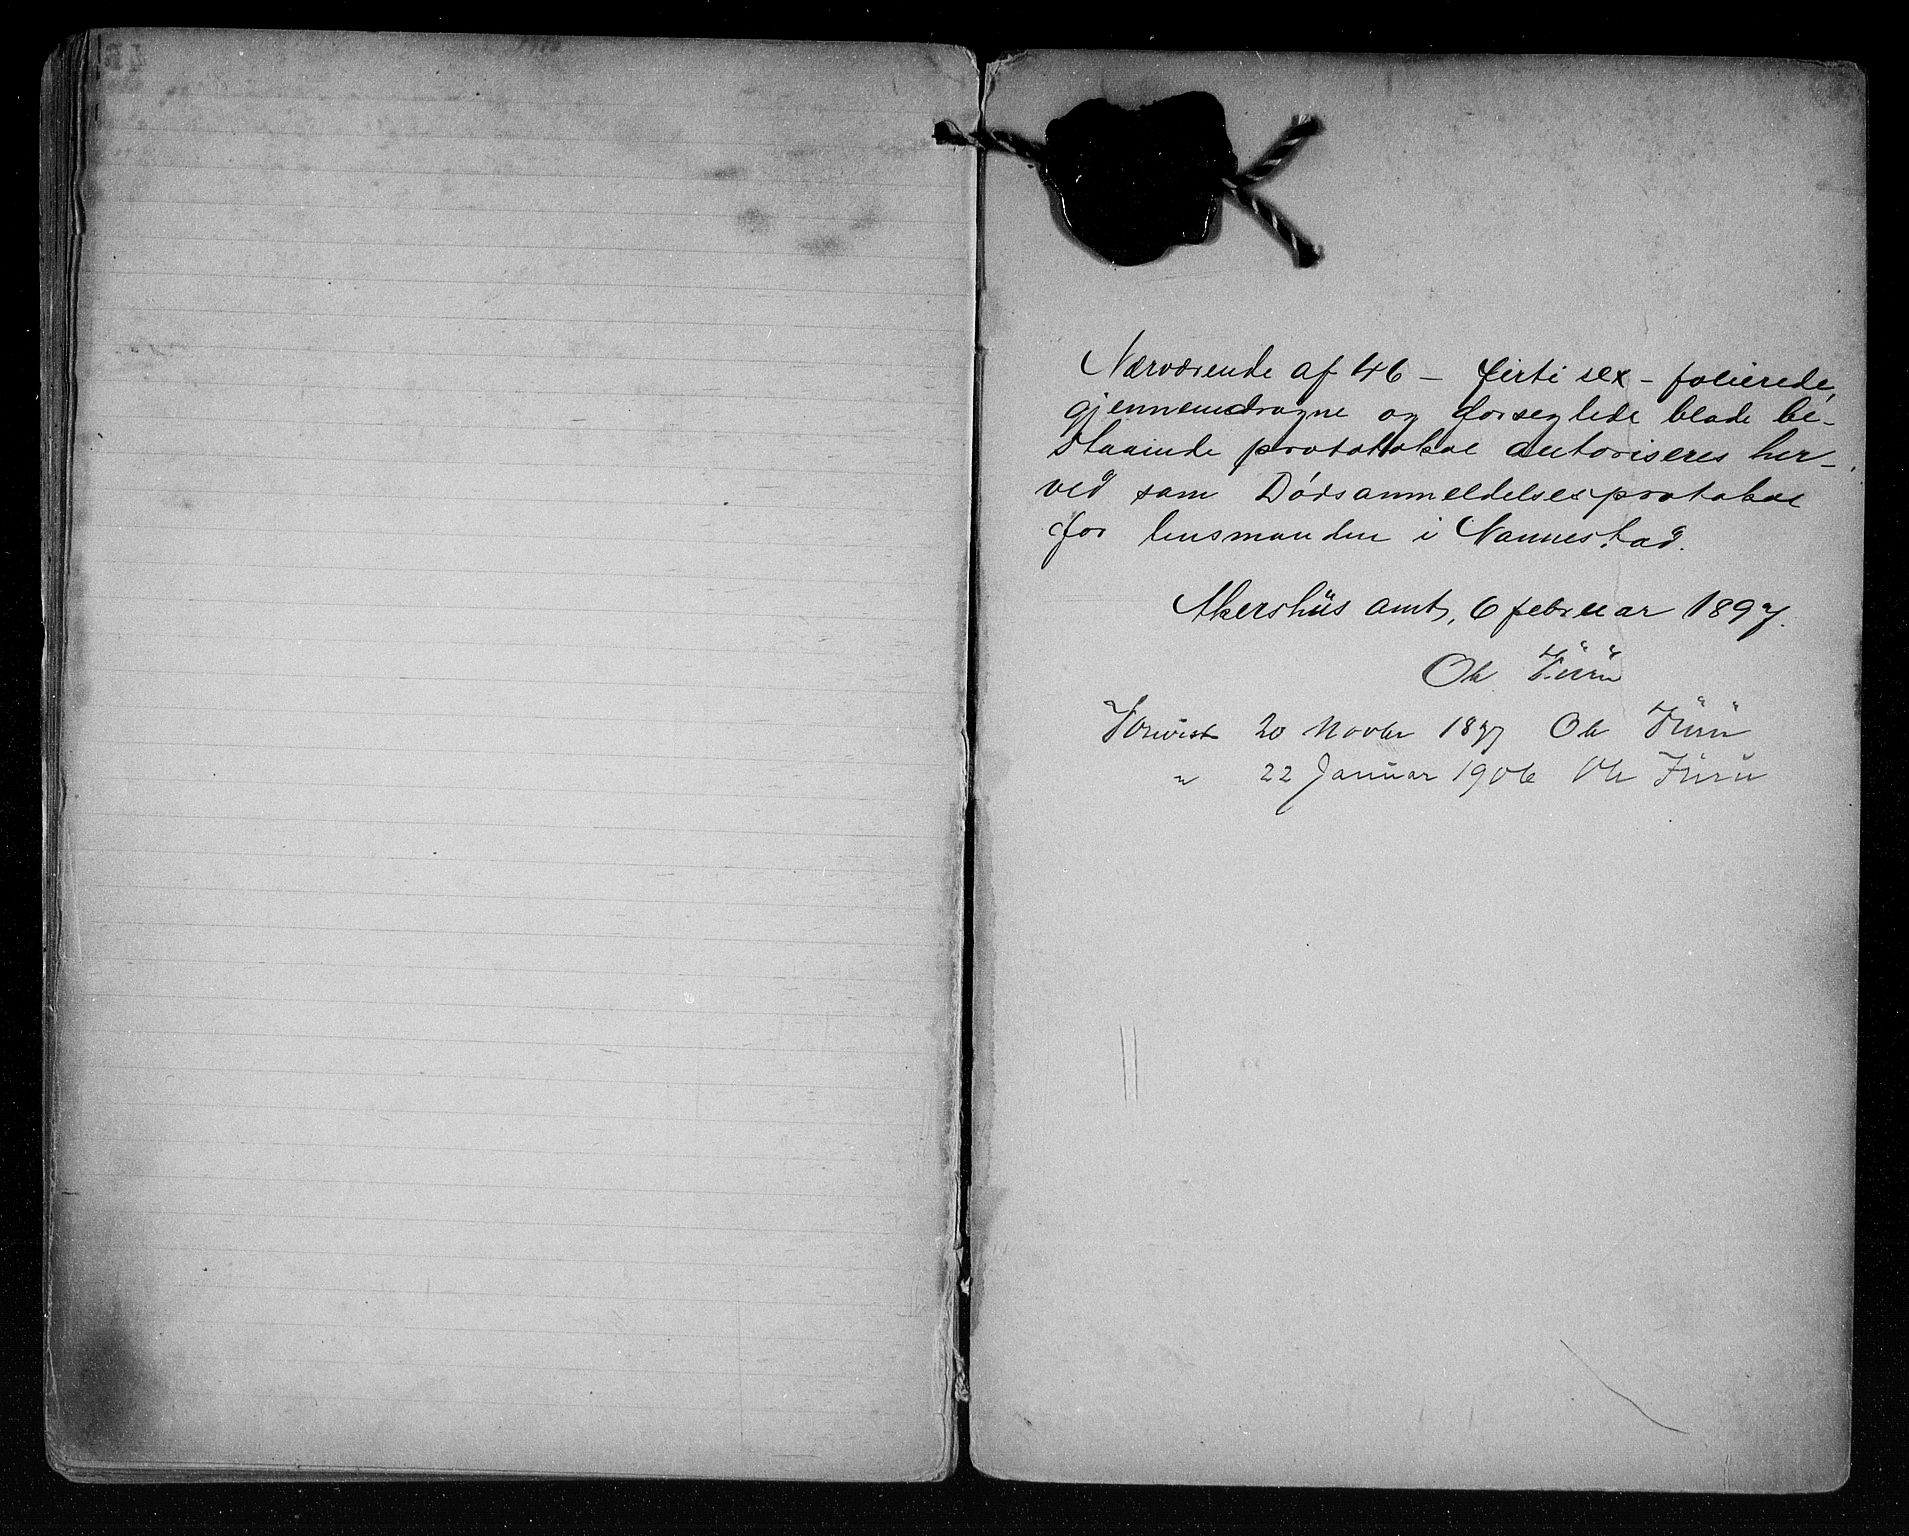 Nærværende af 46 – firti sex – folierede,
gjennemdragne og forseglede blade be-
staaende protokol autoriseres her-
ved som Dødsanmeldelsesprotokol
for lensmanden i Nannestad.
Akershus amt, 6 februar 1897.
Ole Furu
Forevist 20 Novbr 1897 Ole Furu
" 22 Januar 1906 Ole Furu